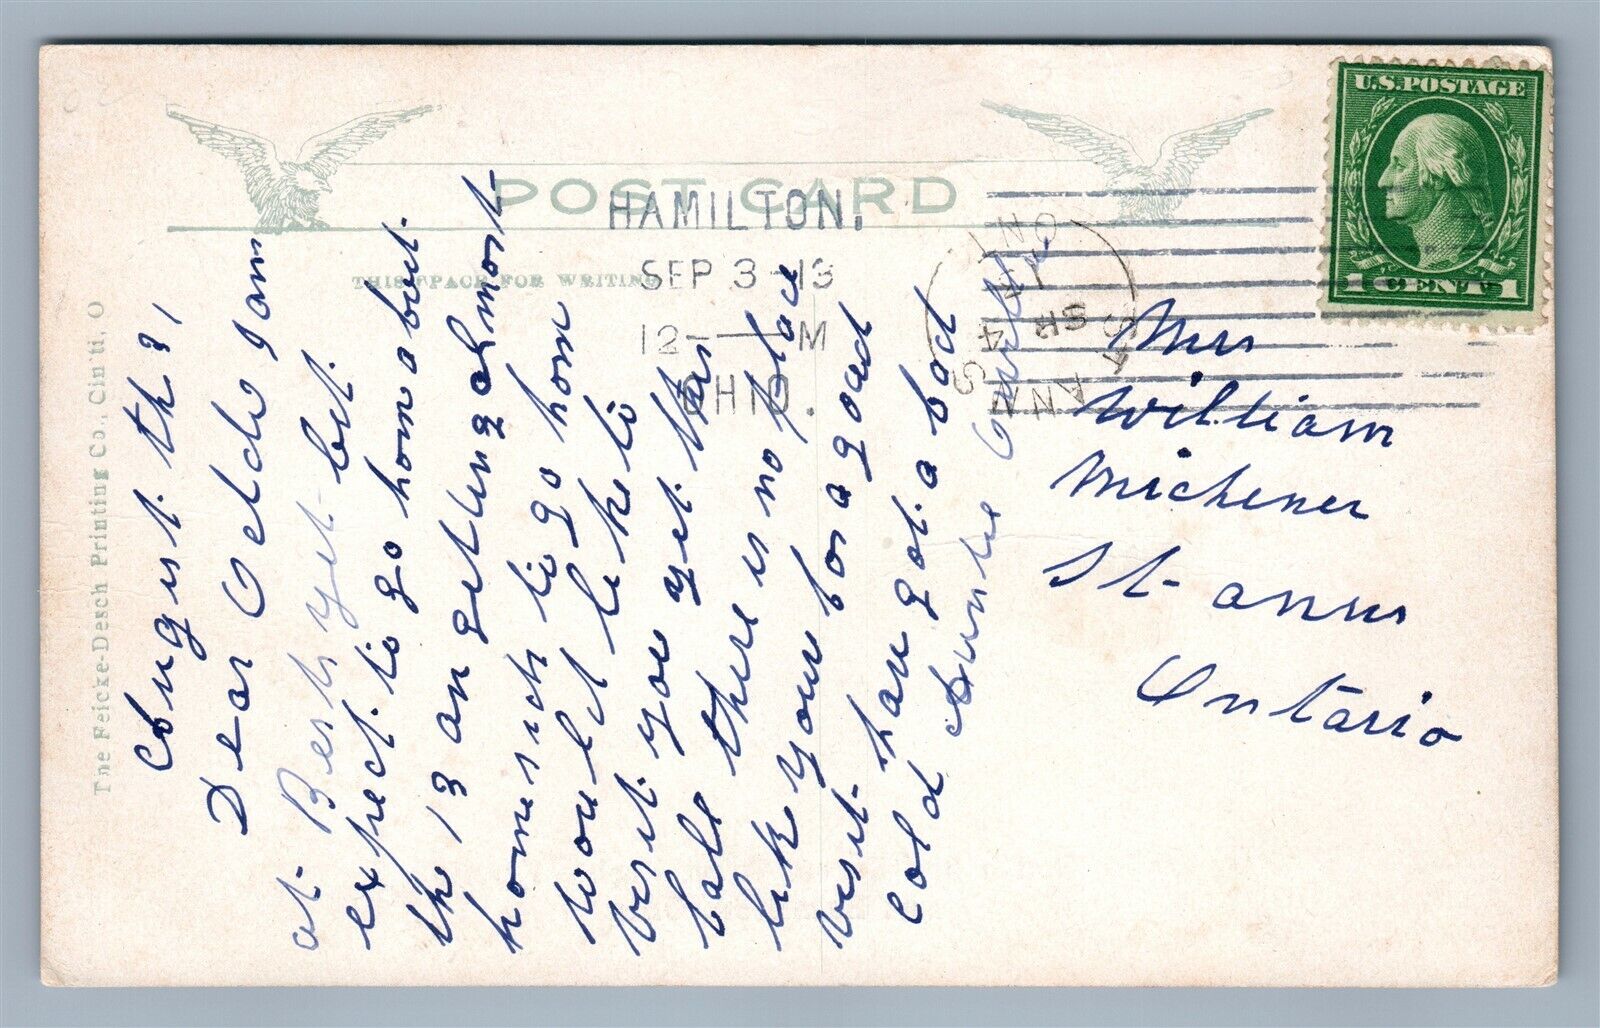 POST CARD
THIS SPACE FOR WRITING
The Feicke-Desch Printing Co., Cin'ti, O
U.S.POSTAGE
1 CENT 1
HAMILTON.
SEP 3 -13
12- M
OHIO.
ST ANNS
SP 4
13
ONT
August th 31
Dear Gelda I am
at Berth yet but.
expect to go hom about.
the 13 an getting almost
homesick to go hom
Would like to
visit you yet this
fall there is no place
lik your for a good
visit hau got a bad
cold Auntie
Mrs
William
Michener
St anns
Ontario